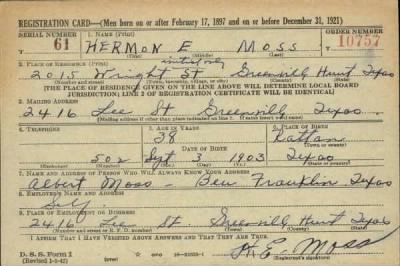 REGISTRATION CARD—(Men born on or after February 17, 1897 and on or before December 31, 1921)
SERIAL NUMBER 1. NAME (Print) ORDER NUMBER
61 HERMON E MOSS 10757
initial only
2. PLACE OF RESIDENCE (Print)
2015 Wright St Greenville Hunt Texas
(Number and street) (Town, township, village, or city) (County) (State)
[THE PLACE OF RESIDENCE GIVEN ON THE LINE ABOVE WILL DETERMINE LOCAL BOARD
JURISDICTION; LINE 2 OF REGISTRATION CERTIFICATE WILL BE IDENTICAL]
3. MAILING ADDRESS
2416 Lee St Greenville Texas
(Mailing address if other than place indicated on line 2. If same insert word same)
4. TELEPHONE 5. AGE IN YEARS 6. PLACE OF BIRTH
38
DATE OF BIRTH (Town or county)
502 Sept 3 1903 Texas
(Exchange) (Number) (Mo.) (Day) (Yr.) (State or country)
7. NAME AND ADDRESS OF PERSON WHO WILL ALWAYS KNOW YOUR ADDRESS
Albert Moss - Ben Franklin Texas
8. EMPLOYER'S NAME AND ADDRESS
Self
9. PLACE OF EMPLOYMENT OR BUSINESS
2416 Lee St. Greenville Hunt Texas
(Number and street or R. F. D. number) (Town) (County) (State)
I AFFIRM THAT I HAVE VERIFIED ABOVE ANSWERS AND THAT THEY ARE TRUE.
D. S. S. Form 1
(Revised 1-1-42) (over)
H. E. Moss
(Registrant's signature)